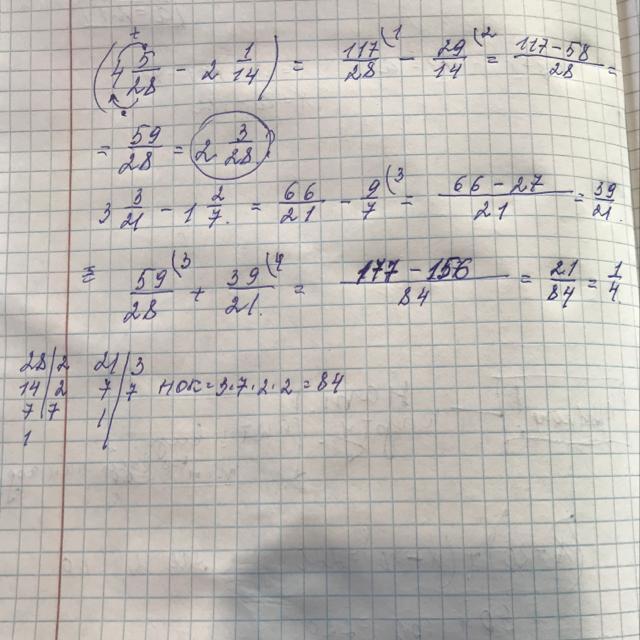 (4 5/28 - 2 1/14) = 117/28 (1 - 29/14 (2 = 117-58/28 =
= 59/28 = 2 3/28
3 3/21 - 1 2/7. = 66/21 - 9/7 (3 = 66-27/21 = 39/21.
= 59/28 (3 + 39/21. (4 = 177-156/84 = 21/84 = 1/4.
28|2 21|3
14|2 7|7 НОК=3·7·2·2=84
7|7 1|
1